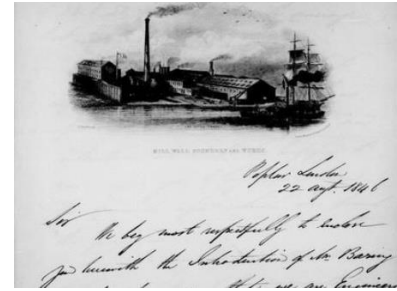 MILL WALL FOUNDRY AND WORKS.
Poplar London
22 Augt. 1846
Sir
We beg most respectfully to enclose
you herewith the Introduction of Mr. Baring
that we are Engineers